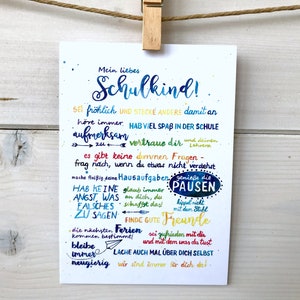 Mein liebes
Schulkind!
SEI fröhlich UND STECKE ANDERE damit an
höre immer HAB VIEL SPAẞ IN DER SCHULE
aufmerksam zu vertraue dir und deinen Lehrern
es gibt keine dummen Fragen -
frag nach, wenn du etwas nicht verstehst
mache fleißig deine Hausaufgaben genieße die
PAUSEN
HAB KEINE
ANGST, WAS
FALSCHES
ZU SAGEN
glaub immer
an dich, du
schaffst das!
kippel nicht
mit dem Stuhl
FINDE GUTE Freunde
die nächsten Ferien
kommen bestimmt!
sei zufrieden mit dir
und mit dem was du tust
bleibe
immer
neugierig
LACHE AUCH MAL ÜBER DICH SELBST
wir sind immer für dich da!